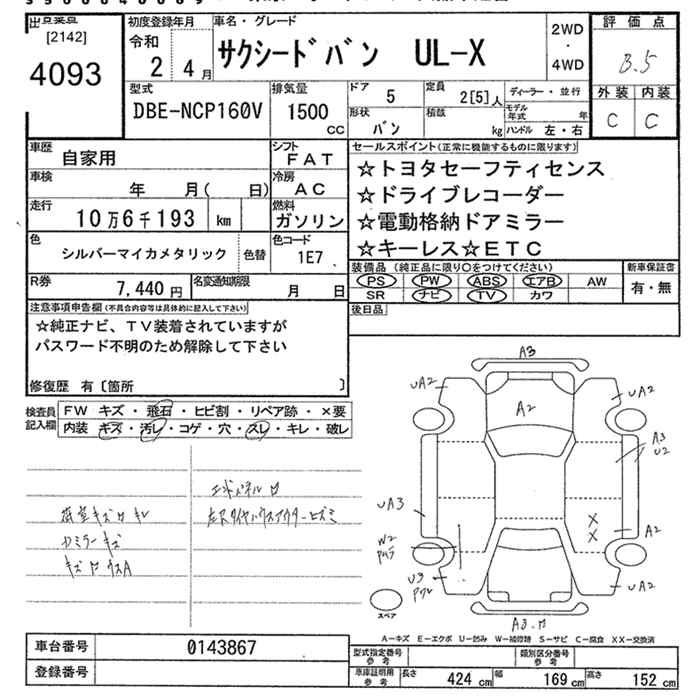 出品番号
[2142]
4093
初度登録年月
令和
2 4月
車名・グレード
サクシードバン UL-X
2WD
・
4WD
評価点
3.5
外装 内装
C C
型式
DBE-NCP160V
排気量
1500
cc
ドア
5
定員
2[5]人
ディーラー・並行
形状
バン
積載
kg
モデル年式
年
ハンドル 左・右
車歴
自家用
シフト
FAT
車検
年 月( 日)
冷房
AC
走行
10万6千193 km
燃料
ガソリン
色
シルバーマイカメタリック
色替
色コード
1E7
R券
7,440円
名変通知期限
月 日
セールスポイント(正常に機能するものに限ります)
☆トヨタセーフティセンス
☆ドライブレコーダー
☆電動格納ドアミラー
☆キーレス☆ETC
装備品(純正品に限り○をつけてください)
PS PW ABS エアB AW
SR ナビ TV カワ
新車保証書
有・無
後日品
注意事項申告欄(不具合内容等は具体的に記入して下さい)
☆純正ナビ、TV装着されていますが
パスワード不明のため解除して下さい
修復歴 有〔箇所 〕
検査員記入欄
FW キズ・飛石・ヒビ割・リペア跡・×要
内装 キズ・汚レ・コゲ・穴・スレ・キレ・破レ
エンドパネル
キズ
A3
UA2
UA2
A2
A3
U2
UA3
W2
X
X
A2
U3
UA2
A3
スペア
A−キズ E−エクボ U−凹み W−補修跡 S−サビ C−腐食 XX−交換済
車台番号
0143867
登録番号
型式指定番号
参考
類別区分番号
参考
車庫証明用
参考
長さ 424 cm 幅 169 cm 高さ 152 cm